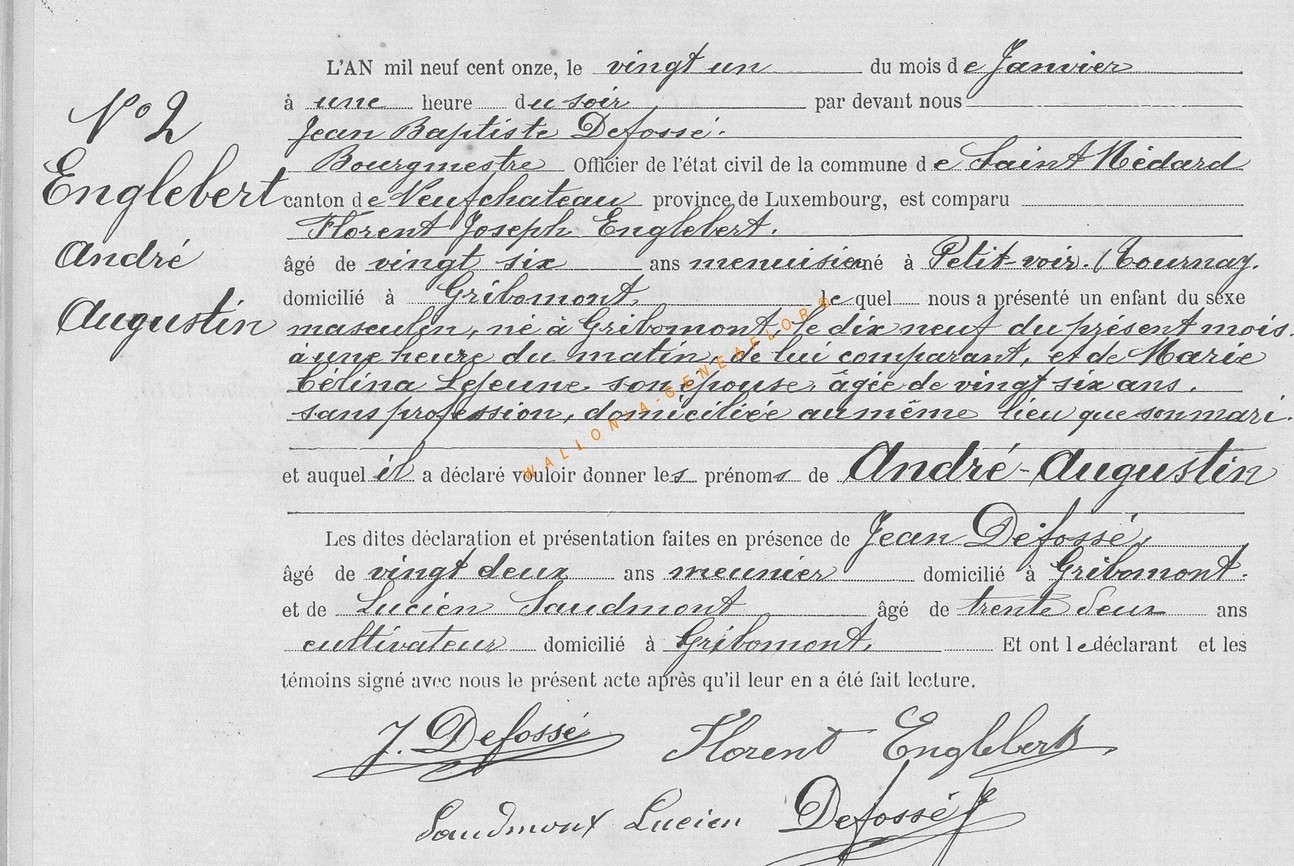 N° 2
Englebert
André
Augustin
L'AN mil neuf cent onze, le vingt un du mois de Janvier
à une heure du soir, par devant nous
Jean Baptiste Defossé.
Bourgmestre Officier de l'état civil de la commune de Saint Médard
canton de Neufchateau province de Luxembourg, est comparu
Florent Joseph Englebert.
âgé de vingt six ans menuisier né à Petit-voir. (Tournay.
domicilié à Gribomont, lequel nous a présenté un enfant du sexe
masculin, né à Gribomont, le dix neuf du présent mois.
à une heure du matin, de lui comparant, et de Marie
Célina Lejeune, son épouse, âgée de vingt six ans.
sans profession, domiciliée au même lieu que son mari.
et auquel il a déclaré vouloir donner les prénoms de André-Augustin
Les dites déclaration et présentation faites en présence de Jean Defossé,
âgé de vingt deux ans meunier domicilié à Gribomont.
et de Lucien Saudmont âgé de trente deux ans
cultivateur domicilié à Gribomont. Et ont le déclarant et les
témoins signé avec nous le présent acte après qu'il leur en a été fait lecture.
J. Defossé Florent Englebert
Saudmont Lucien Defossé J
WALLONIA-GENEAFLORE